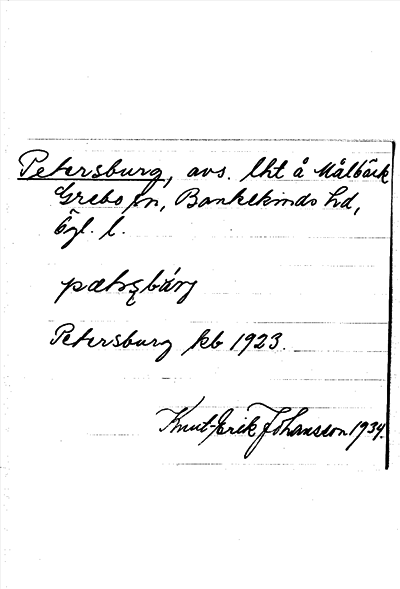 Petersburg, avs. lht å Målbäck
Grebo sn, Bankekinds hd,
Ögl. l.
Petersburg kb 1923.
Knut-Erik Johansson 1934.